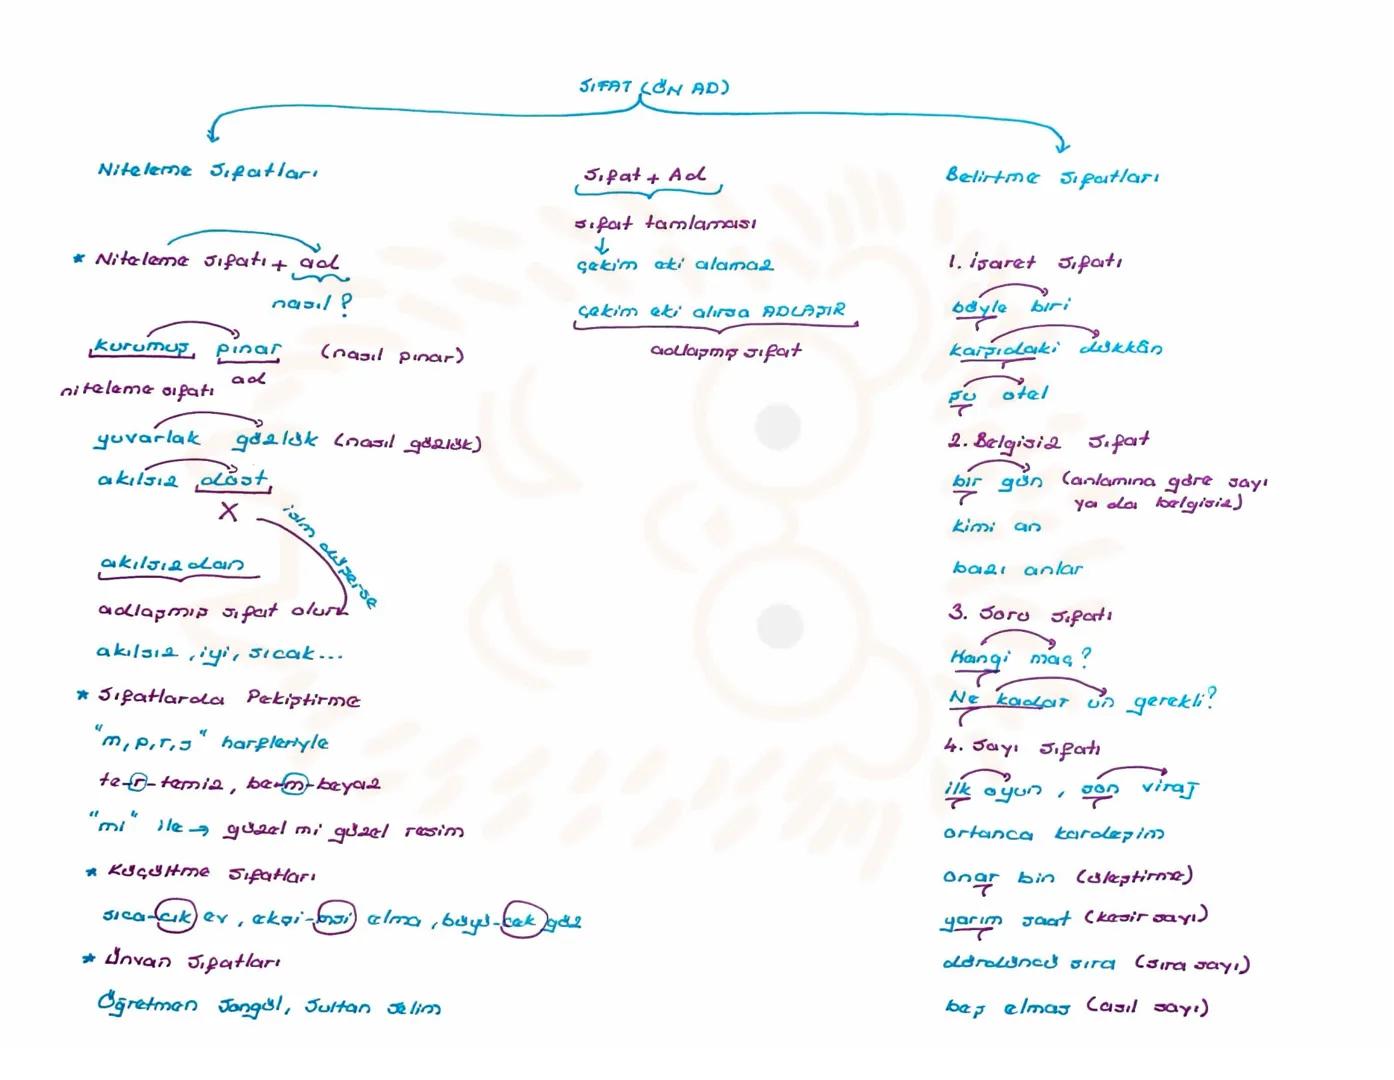 SIFAT (ÖN AD)
Niteleme Sıfatları
* Niteleme sıfatı + ad
nasıl?
kurumuş pınar (nasıl pınar)
niteleme sıfatı ad
yuvarlak gözlük (nasıl gözlük)
akılsız dost
X
isim düşerse
akılsızdan
adlaşmış sıfat olur
akılsız, iyi, sıcak...
* Sıfatlarda Pekiştirme
"m, p, r, s" harfleriyle
te-r-temiz, be-m-beyaz
"mi" ile → güzel mi güzel resim
* Küçültme Sıfatları
sıca-cık ev, ekşi-msi elma, büyü-cek göz
* Ünvan Sıfatları
Öğretmen Songül, Sultan Selim
Sıfat + Ad
sıfat tamlaması
çekim eki alamaz
çekim eki alırsa ADLAŞIR
adlaşmış sıfat
Belirtme Sıfatları
1. işaret sıfatı
böyle biri
karşıdaki dükkân
şu otel
2. Belgisiz Sıfat
bir gün (anlamına göre sayı
ya da belgisiz)
kimi an
bazı anlar
3. Soru Sıfatı
Hangi maç?
Ne kadar un gerekli?
4. Sayı Sıfatı
ilk oyun, son viraj
ortanca kardeşim
onar bin (üleştirme)
yarım saat (kesir sayı)
dördüncü sıra (sıra sayı)
beş elmas (asıl sayı)